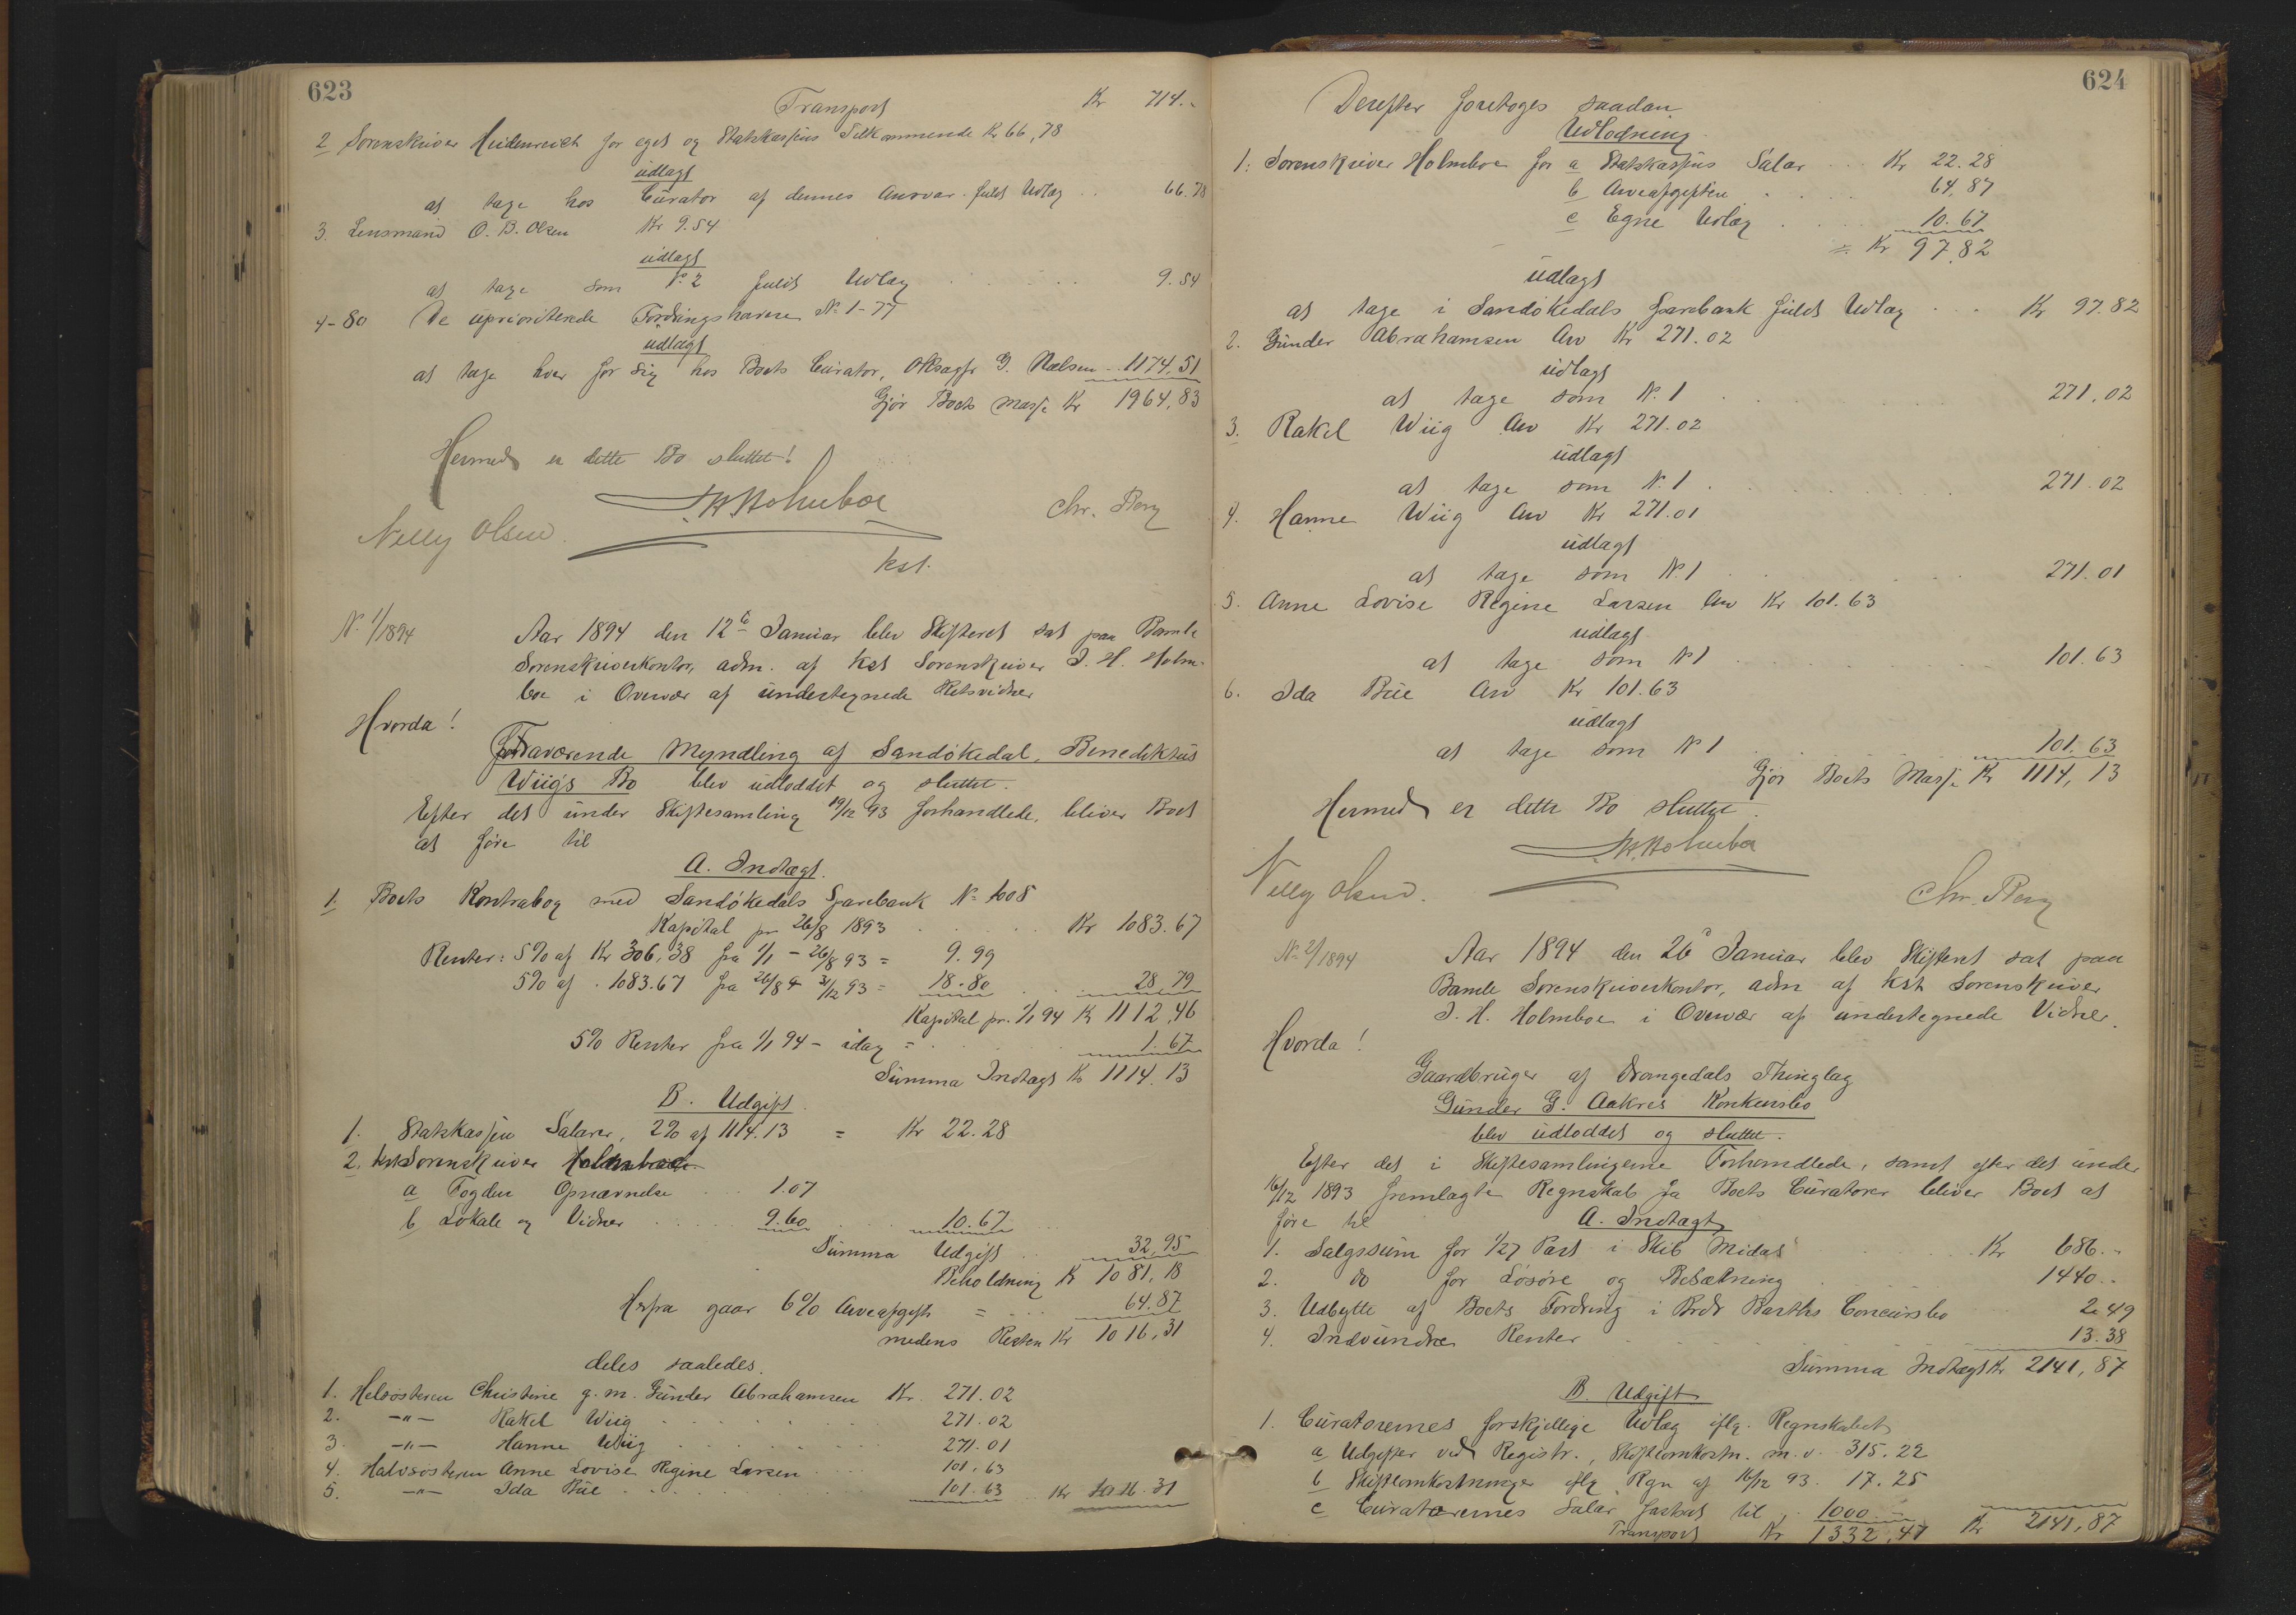 623
Transport Kr 714.-
2 Sorenskriver Heidenreich for eget og Statskassens Tilkommende Kr 66,78
udlagt
at tage hos Curator af dennes Ansvar fuldt Udlæg .. 66.78
3. Lensmand O. B. Olsen Kr 9.54
udlagt
at tage som No 2 fuldt Udlæg 9.54
4-80 De uprioriterede Fordringshavere No 1-77
udlagt
at tage hver for sig hos Boets Curator, O.Rsagfr G. Nielsen .. 1174,51
Gjør Boets Masse Kr 1964,83
Hermed er dette Bo sluttet!
J H Holmboe
Chr. Berg
Nelly Olsen.
kst.
No 1/1894 Aar 1894 den 12te Januar blev Skifteret sat paa Bamle
Sorenskriverkontor, adm. af kst Sorenskriver J. H. Holm-
boe i Overvær af undertegnede Retsvidner
Hvorda!
Fraværende Myndling af Sandökedal, Benediktus
Wiigs Bo blev udloddet og sluttet.
Efter det under Skiftesamling 19/12 93 forhandlede, bliver Boet
at före til
A. Indtægt.
1 Boets Kontrabog med Sandökedals Sparebank No 1008
Kapital pr 26/8 1893 Kr 1083.67
Renter: 5% af Kr 306,38 fra 1/1 - 26/8 93 = 9.99
5% af - 1083.67 fra 26/8 - 31/12 93 = 18.80 28,79
Kapital pr. 1/1 94 Kr 1112,46
5% Renter fra 1/1 94 - idag = 1.67
Summa Indtægt Kr 1114.13
B. Udgift
1. Statskassen Salarer, 2% af 1114.13 = Kr 22.28
2. kst Sorenskriver Holmboe
a Fogden Opnævnelse 1.07
b Lokale og Vidner 9.60 10.67
Summa Udgift 32,95
Beholdning Kr 1081,18
Herfra gaar 6% Arveafgift = 64.87
medens Resten Kr 1016,31
deles saaledes.
1. Helsøsteren Christine g. m. Gunder Abrahamsen Kr 271.02
2. -"- Rakel Wiig 271.02
3. -"- Hanne Wiig 271.01
4. Halvsøsteren Anne Lovise Regine Larsen 101.63
5. -"- Ida Bue 101.63 Kr 1016.31
624
Derefter foretoges saadan
Udlodning
1: Sorenskriver Holmboe for a Statskassens Salar Kr 22.28
b Arveafgiften 64,87
c Egne Udlæg 10.67
= Kr 97.82
udlagt
at tage i Sandökedals Sparebank fuldt Udlæg Kr 97.82
2. Gunder Abrahamsen Arv Kr 271.02
udlagt
at tage som No 1 271.02
3. Rakel Wiig Arv Kr 271.02
udlagt
at tage som No 1 271.02
4. Hanne Wiig Arv Kr 271.01
udlagt
at tage som No 1 271.01
5. Anne Lovise Regine Larsen Arv Kr 101.63
udlagt
at tage som No 1 101.63
6. Ida Bue Arv Kr 101.63
udlagt
at tage som No 1 101.63
Gjør Boets Masse Kr 1114,13
Hermed er dette Bo sluttet.
J H Holmboe
Nelly Olsen.
Chr. Berg
No 2/1894 Aar 1894 den 26de Januar blev Skifteret sat paa
Bamle Sorenskriverkontor, adm af kst Sorenskriver
J. H. Holmboe i Overvær af undertegnede Vidner.
Hvorda!
Gaardbruger af Drangedals Thinglag
Gunder G. Aakres Konkursbo
blev udloddet og sluttet.
Efter det i Skiftesamlingerne Forhandlede, samt efter det under
16/12 1893 fremlagte Regnskab fra Boets Curatorer bliver Boet at
føre til A. Indtægt
1. Salgssum for 1/27 Part i Skib "Midas" Kr 686.-
2. do for Løsøre og Besætning 1440.-
3. Udbytte af Boets Fordring i Brdr Barths Concursbo 2.49
4. Indvundne Renter 13.38
Summa Indtægt Kr 2141,87
B. Udgift
1. Curatorernes forskjellige Udlæg iflg. Regnskabet
a Udgifter ved Registr., Skifteomkostn. m. v. 315.22
b Skifteomkostninger iflg Rgn af 16/12 93. 17.25
c Curatorernes Salar fastsat til, 1000 -
Transport Kr 1332,47 Kr 2141,87